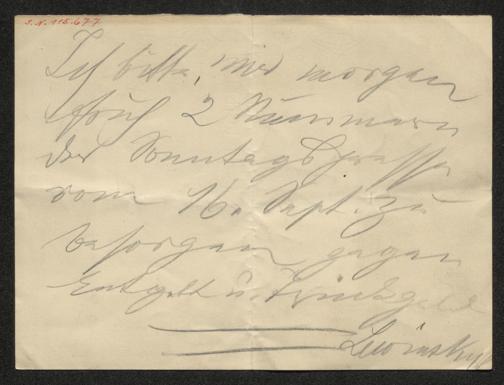 J.N. 115.677
Ich bitte, mir morgen
früh 2 Nummern
der Sonntagspresse
vom 16. Sept. zu
besorgen gegen
Entgelt u. Trinkgeld
Lewinsky